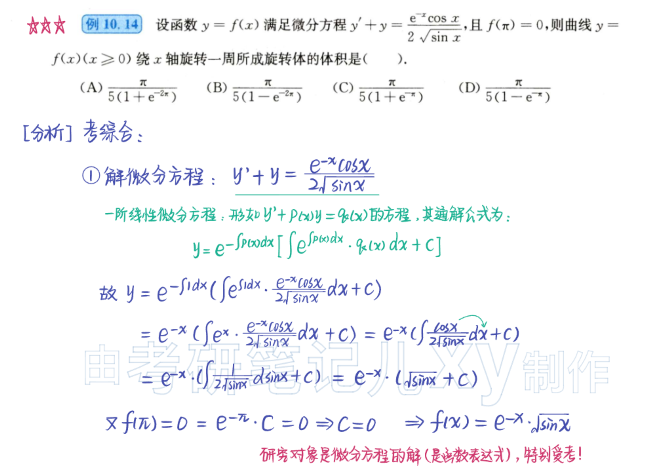 ☆☆☆ 例 10.14 设函数 y = f(x) 满足微分方程 y′ + y = \frac{e^{-x}cos x}{2\sqrt{sin x}}, 且 f(π) = 0, 则曲线 y =
f(x)(x ≥ 0) 绕 x 轴旋转一周所成旋转体的体积是( ).
(A) \frac{π}{5(1+e^{-2π})} (B) \frac{π}{5(1-e^{-2π})} (C) \frac{π}{5(1+e^{-π})} (D) \frac{π}{5(1-e^{-π})}
[分析] 考综合:
①解微分方程: y' + y = \frac{e^{-x}cosx}{2\sqrt{sinx}}
一阶线性微分方程: 形如 y' + p(x)y = q(x) 的方程, 其通解公式为:
y = e^{-∫p(x)dx}[∫e^{∫p(x)dx}·q(x)dx + C]
故 y = e^{-∫1dx}(∫e^{∫1dx}·\frac{e^{-x}cosx}{2\sqrt{sinx}}dx + C)
= e^{-x}(∫e^{x}·\frac{e^{-x}cosx}{2\sqrt{sinx}}dx + C) = e^{-x}(∫\frac{cosx}{2\sqrt{sinx}}dx + C)
= e^{-x}·(∫\frac{1}{2\sqrt{sinx}}dsinx + C) = e^{-x}·(\sqrt{sinx} + C)
又 f(π) = 0 = e^{-π}·C = 0 ⇒ C = 0 ⇒ f(x) = e^{-x}·\sqrt{sinx}
研究对象是微分方程的解(是函数表达式), 特别爱考!
由考研笔记儿xy制作